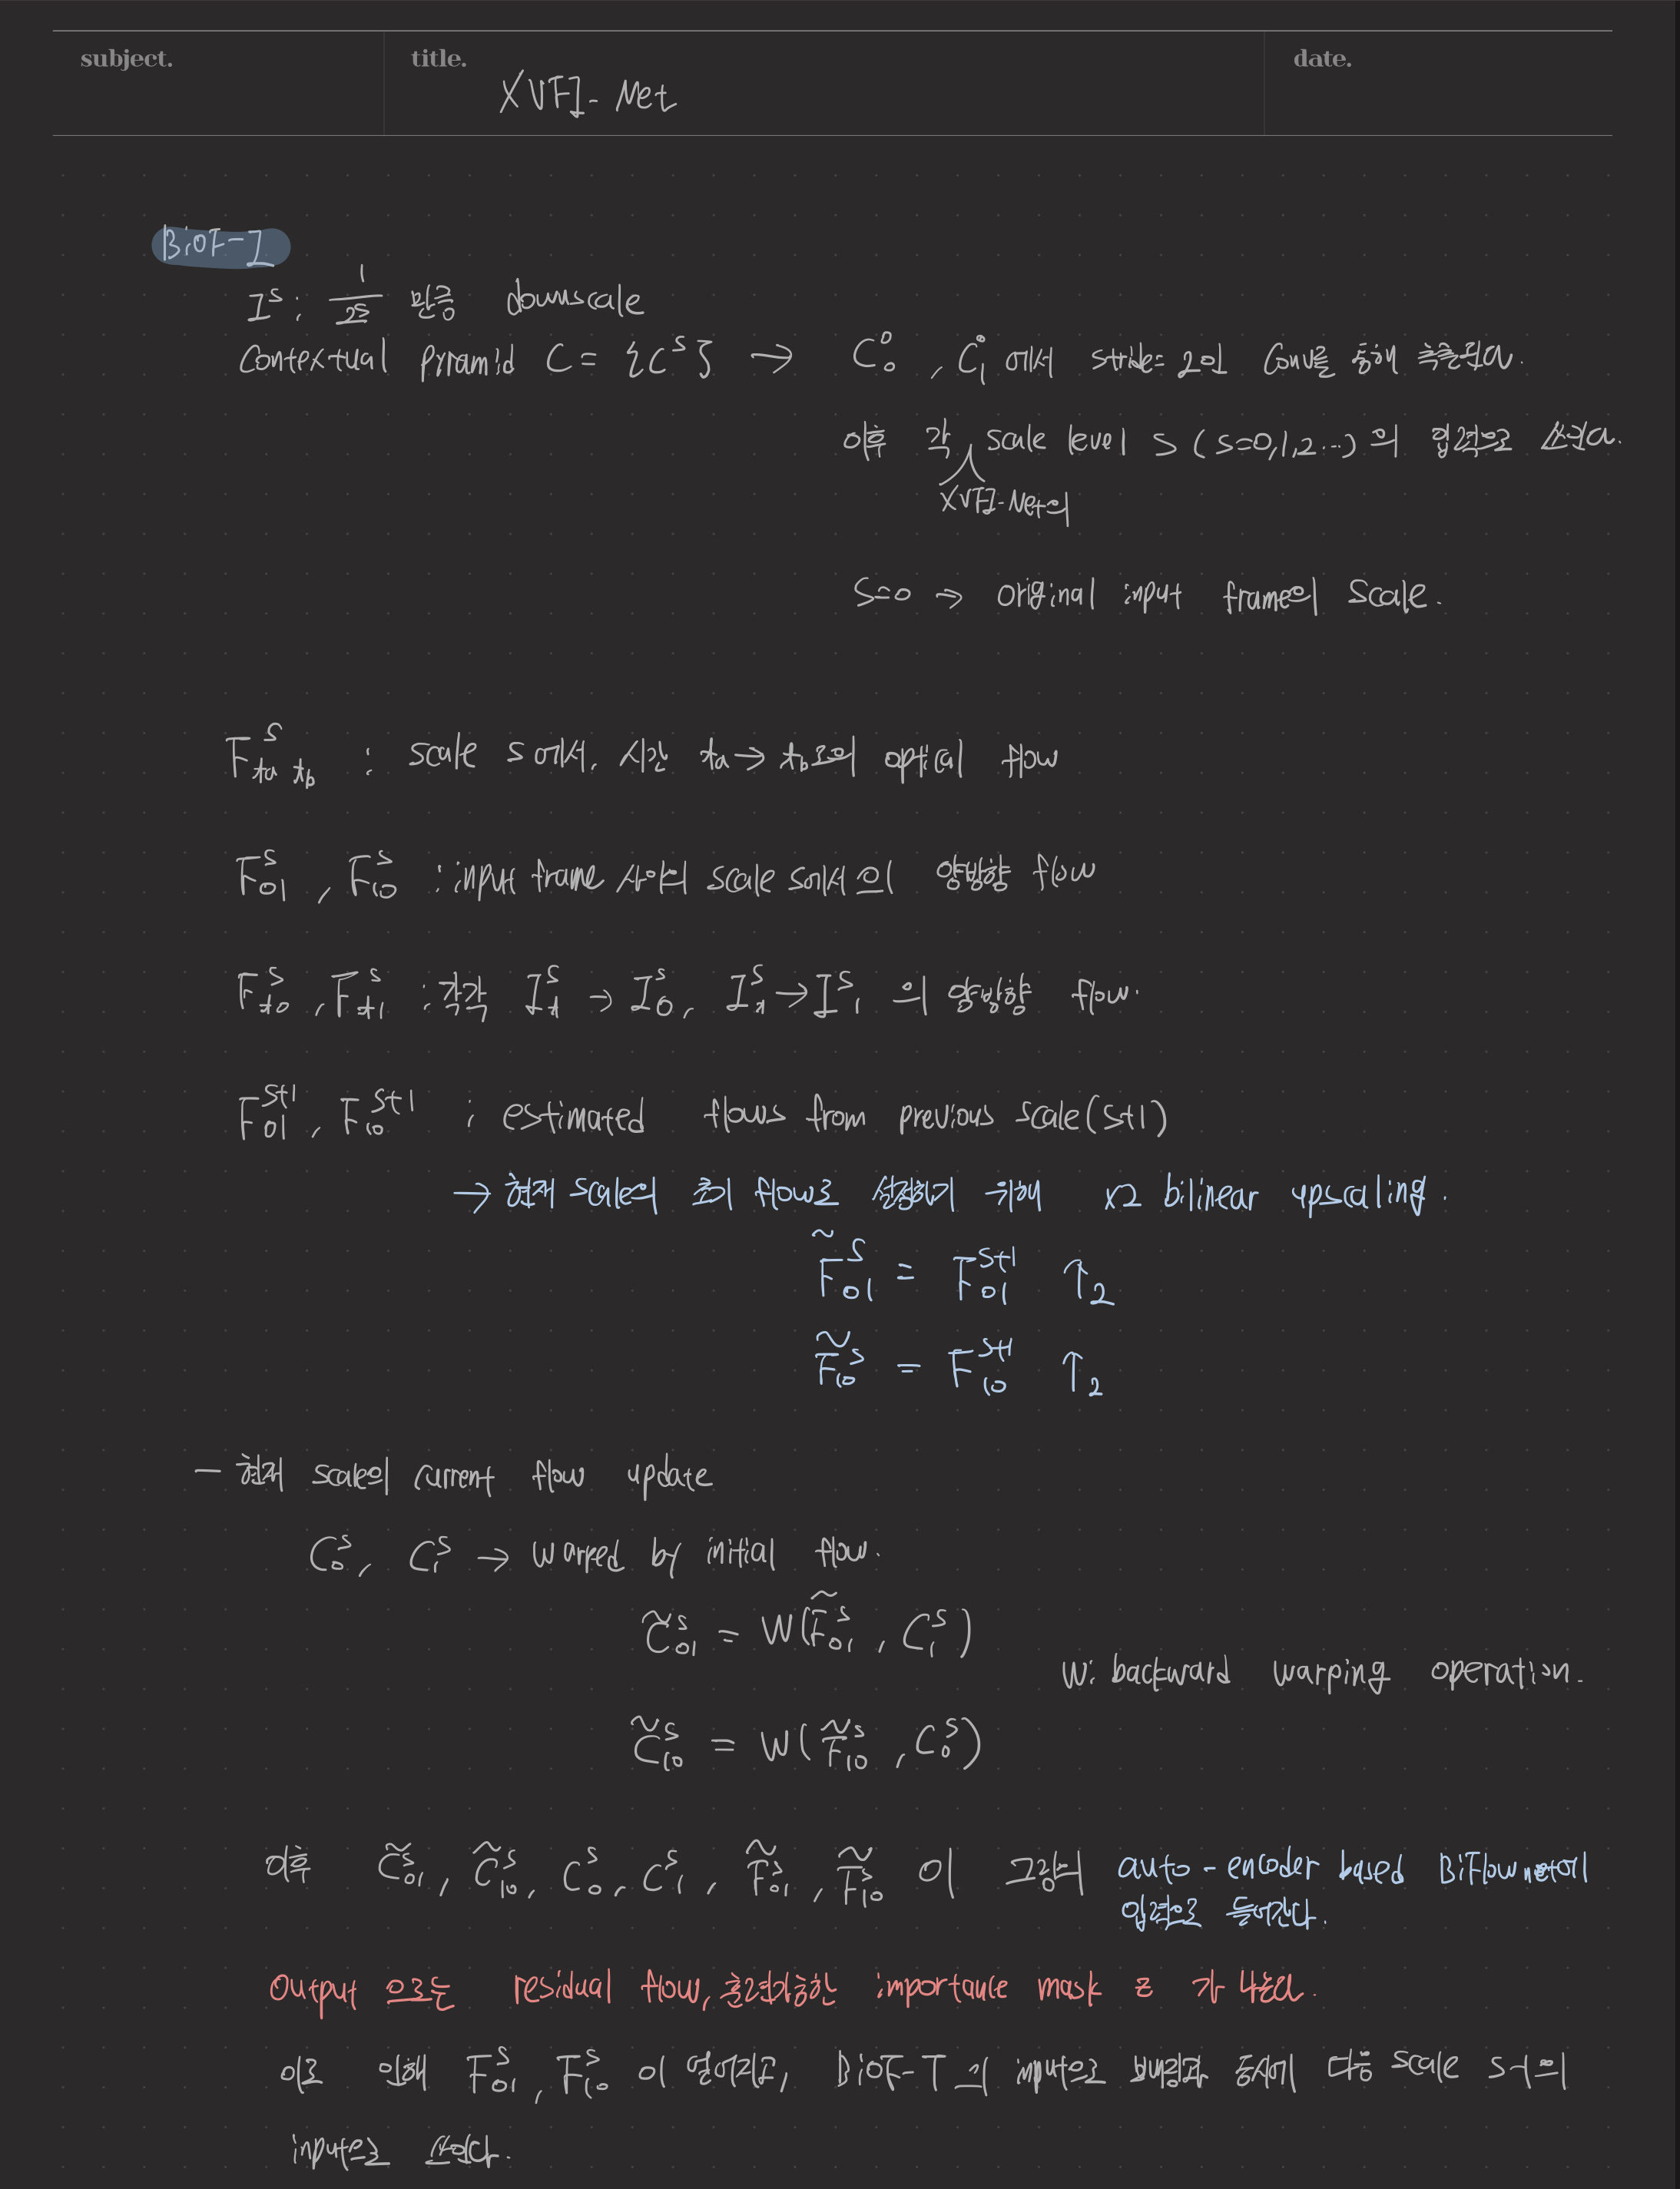 subject.
title.
date.
XVFI-Net
BiOF-I
I^s : 1/2^s 만큼 downscale
Contextual Pyramid C = {C^s} → C_0^0, C_1^0 에서 stride=2인 Conv를 통해 추출된다.
이후 각 scale level s (s=0,1,2...)의 입력으로 쓰인다.
XVFI-Net의
S=0 → original input frame의 scale.
F_{t_a t_b}^s : scale s에서, 시간 t_a → t_b로의 optical flow
F_{01}^s, F_{10}^s : input frame 사이의 scale s에서의 양방향 flow
F_{t0}^s, F_{t1}^s : 각각 I_t^s → I_0^s, I_t^s → I_1^s 의 양방향 flow.
F_{01}^{s+1}, F_{10}^{s+1} : estimated flows from previous scale(s+1)
→ 현재 scale의 초기 flow로 설정하기 위해 x2 bilinear upscaling.
F̃_{01}^s = F_{01}^{s+1} ↑_2
F̃_{10}^s = F_{10}^{s+1} ↑_2
- 현재 scale의 current flow update
C_0^s, C_1^s → warped by initial flow.
C̃_{01}^s = W(F̃_{01}^s, C_1^s)
W: backward warping operation.
C̃_{10}^s = W(F̃_{10}^s, C_0^s)
이후 C̃_{01}^s, C̃_{10}^s, C_0^s, C_1^s, F̃_{01}^s, F̃_{10}^s 이 auto-encoder based BiFlownet에
입력으로 들어간다.
Output 으로는 residual flow, importance mask z 가 나온다.
이로 인해 F_{01}^s, F_{10}^s 이 얻어지고, BiOF-T의 input으로 동시에 다음 scale s-1의
input으로 쓰인다.